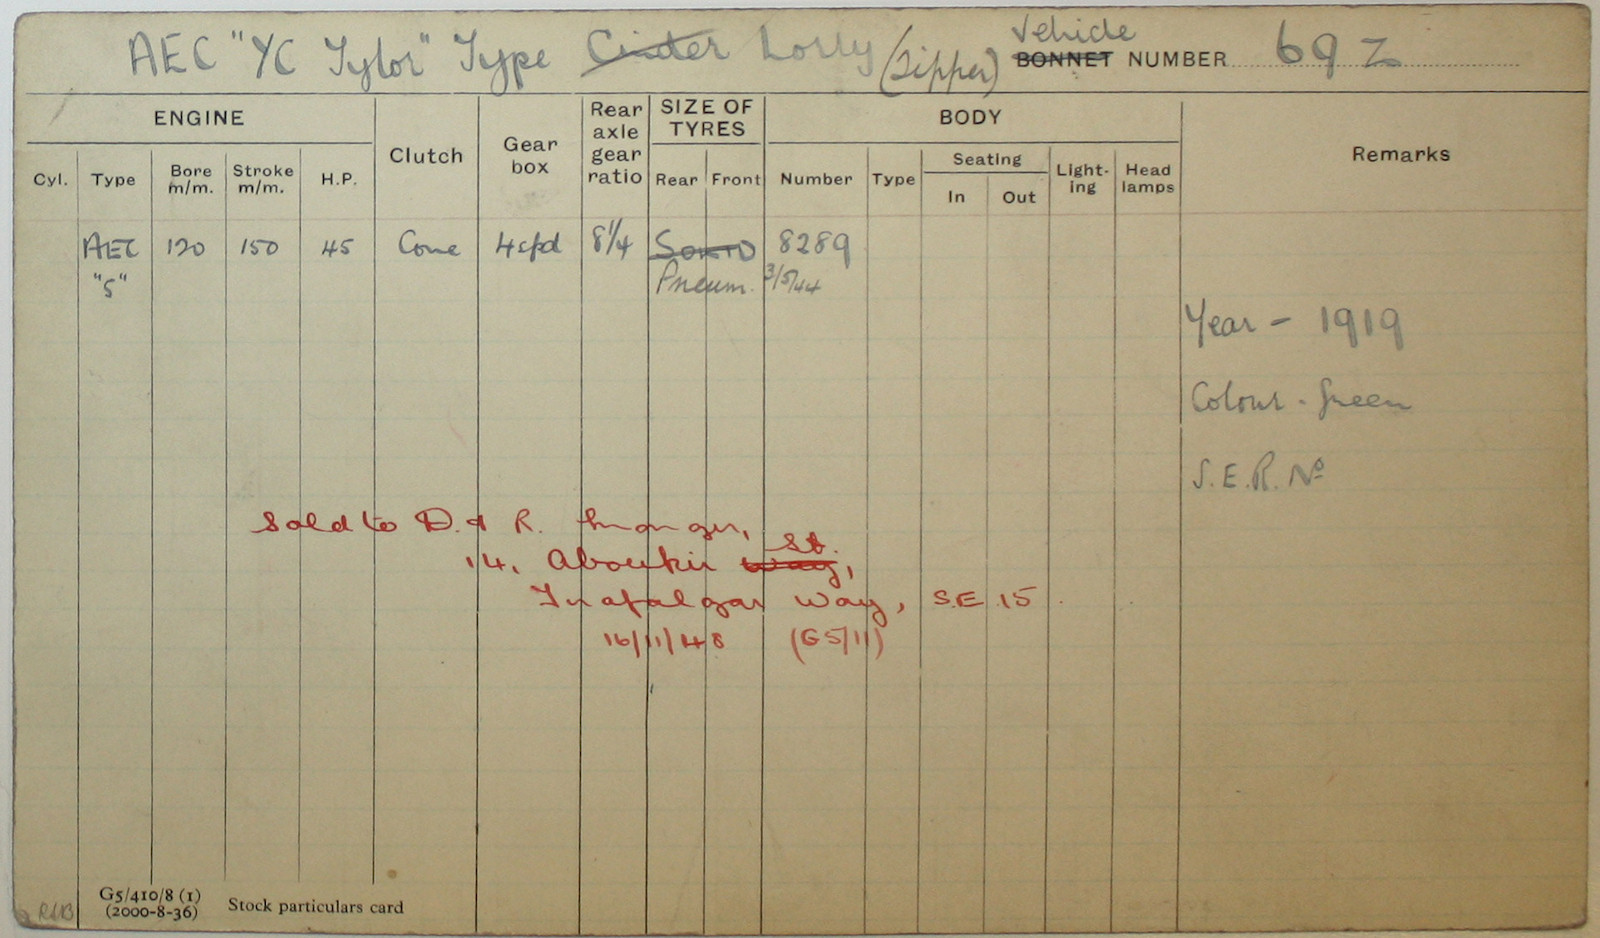 Vehicle
AEC "YC Tylor" Type Cinder Lorry (Tipper) BONNET NUMBER 69 Z
ENGINE Clutch Gear box Rear axle gear ratio SIZE OF TYRES BODY Remarks
Cyl. Type Bore m/m. Stroke m/m. H.P. Rear Front Number Type Seating In Out Light-ing Head lamps
AEC 120 150 45 Cone 4 spd 8¼ SOLID 8289
"S" Pneum. 3/5/44
Year - 1919
Colour - Green
S.E.R. No
Sold to D. & R.
St.
14, Aboukir Way,
Trafalgar Way, S.E 15.
16/11/48 (G5/11)
G5/410/8 (1)
(2000-8-36) Stock particulars card